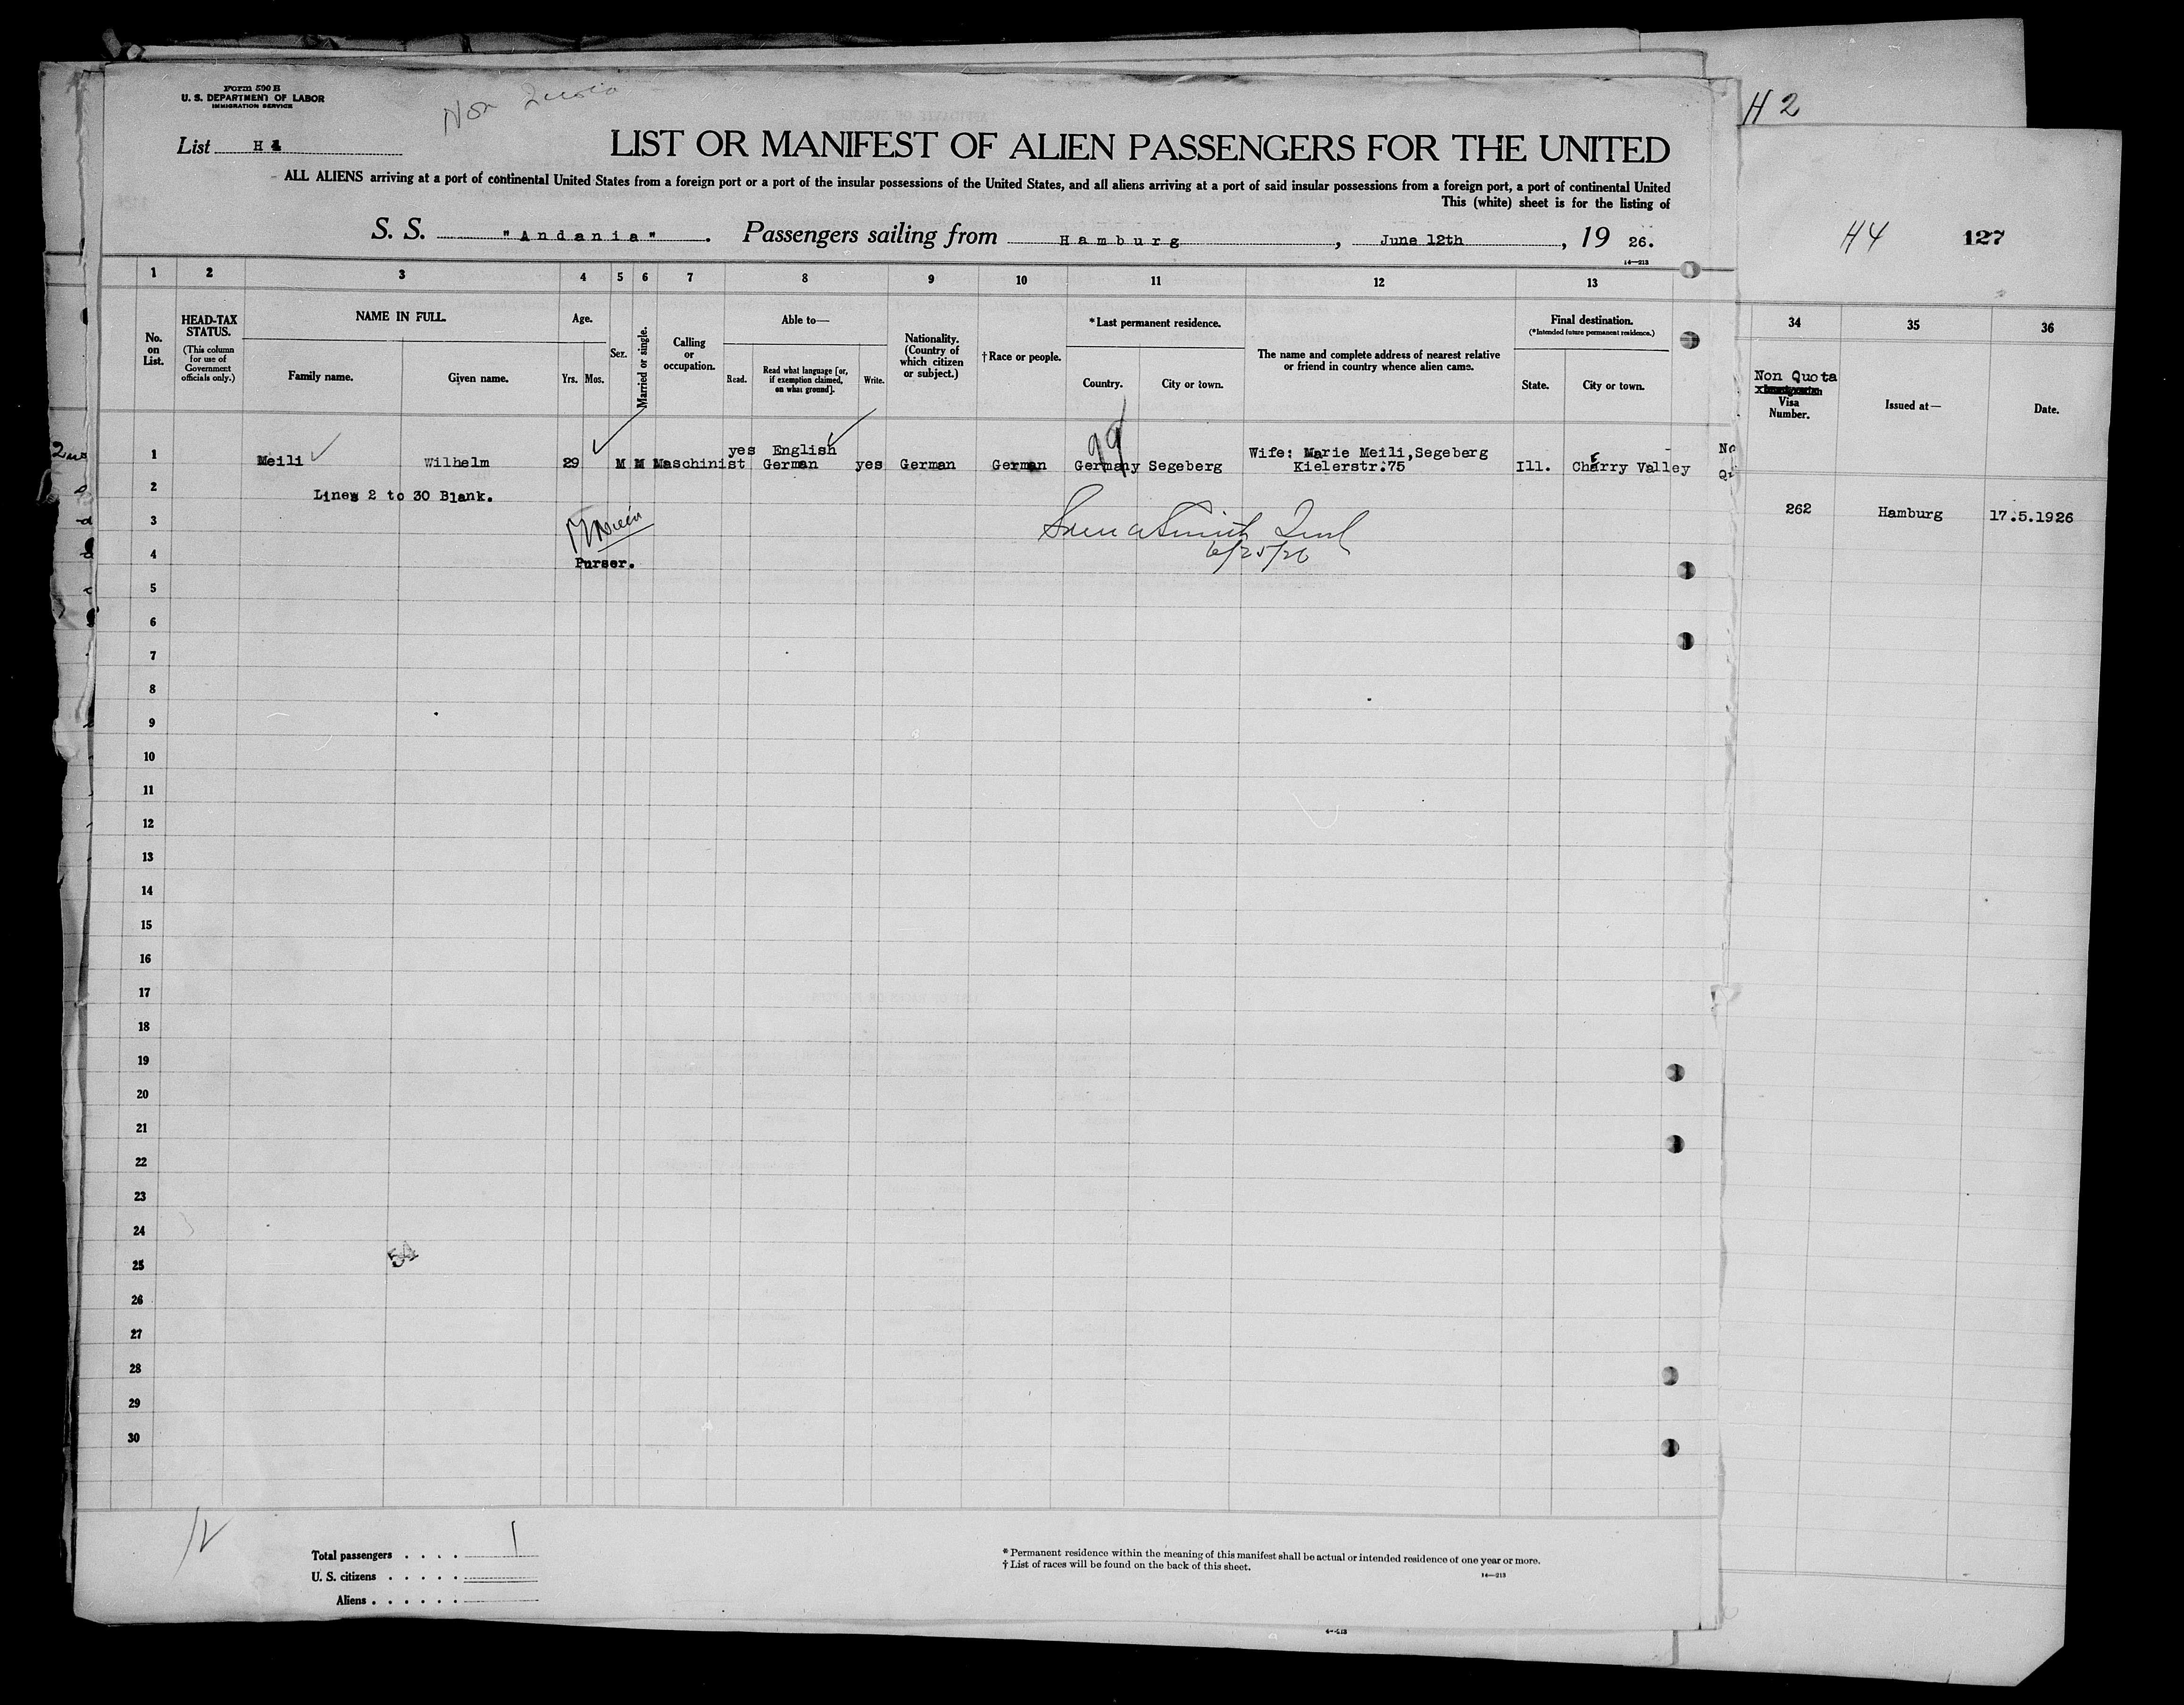 Form 500 B
U. S. DEPARTMENT OF LABOR
IMMIGRATION SERVICE
Non
List H 4
LIST OR MANIFEST OF ALIEN PASSENGERS FOR THE UNITED
ALL ALIENS arriving at a port of continental United States from a foreign port or a port of the insular possessions of the United States, and all aliens arriving at a port of said insular possessions from a foreign port, a port of continental United
This (white) sheet is for the listing of
S. S. "Andania". Passengers sailing from Hamburg, June 12th, 19 26.
14—213
H 2
H4 127
1 2 3 4 5 6 7 8 9 10 11 12 13
No. on List.
HEAD-TAX STATUS.
(This column for use of Government officials only.)
NAME IN FULL.
Family name. Given name.
Age.
Yrs. Mos.
Sex.
Married or single.
Calling or occupation.
Able to—
Read. Read what language [or, if exemption claimed, on what ground]. Write.
Nationality. (Country of which citizen or subject.)
† Race or people.
*Last permanent residence.
Country. City or town.
The name and complete address of nearest relative or friend in country whence alien came.
Final destination.
(*Intended future permanent residence.)
State. City or town.
34 35 36
Non Quota
Visa Number.
Issued at—
Date.
yes English
1 Meili Wilhelm 29 M M Maschinist German yes German German Germany Segeberg Wife: Marie Meili, Segeberg Kielerstr.75 Ill. Cherry Valley
99
2 Lines 2 to 30 Blank.
262 Hamburg 17.5.1926
3
6/25/26
4 Purser.
5
6
7
8
9
10
11
12
13
14
15
16
17
18
19
20
21
22
23
24
25
26
27
28
29
30
54
Total passengers . . . . 1
U. S. citizens . . . . .
Aliens . . . . . .
* Permanent residence within the meaning of this manifest shall be actual or intended residence of one year or more.
† List of races will be found on the back of this sheet.
14—213